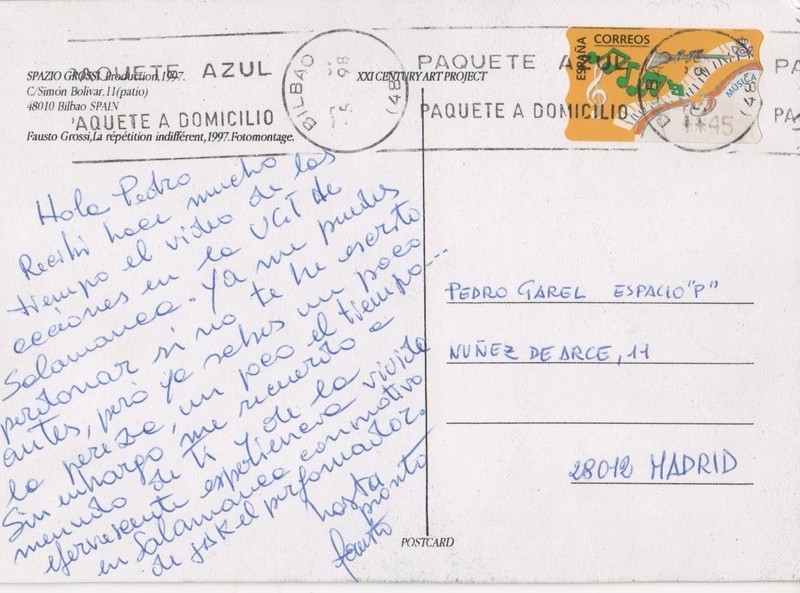 SPAZIO GROSSI Production, 1997.
C/Simón Bolivar, 11 (patio)
48010 Bilbao SPAIN
Fausto Grossi, La répétition indifférent, 1997. Fotomontage.
XXI CENTURY ART PROJECT
PAQUETE AZUL
PAQUETE A DOMICILIO
BILBAO
98
(48
PAQUETE AZUL
PAQUETE A DOMICILIO
ESPAÑA
CORREOS
MÚSICA
**45
(48
PA
PAQ
Hola Pedro
Recibi hace mucho
tiempo el video de las
acciones en la UGT de
Salamanca. Ya me puedes
perdonar si no te he escrito
antes, pero ya sabes un poco
la pereza, un poco el tiempo...
Sin embargo me recuerdo a
menudo de ti y de la
efervescente esperiencia vivida
en Salamanca con motivo
de performador.
hasta
pronto
fausto
PEDRO GAREL ESPACIO "P"
NUÑEZ DE ARCE, 11
28012 MADRID
POSTCARD